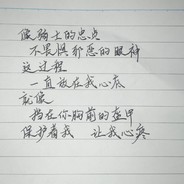 像骑士的忠贞
不畏惧邪恶的眼神
这过程
一直放在我心底
就像
挡在你胸前的盔甲
保护着我 让我心疼